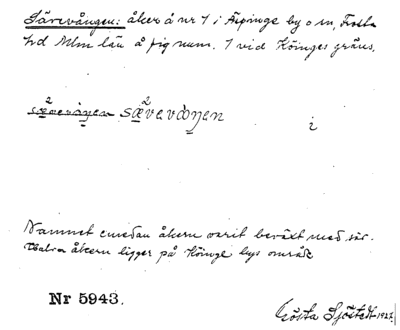 Särevången: åker å nr 1 i Äspinge by o sn, Frosta
hd Mlm län å fig num. 1 vid Köinges gräns.
sævevåŋen sævevåŋen i
Namnet emedan åkern varit beväxt med sär.
åkern ligger på Köinge bys område
Nr 5943.
Gösta Sjöstedt 1927.